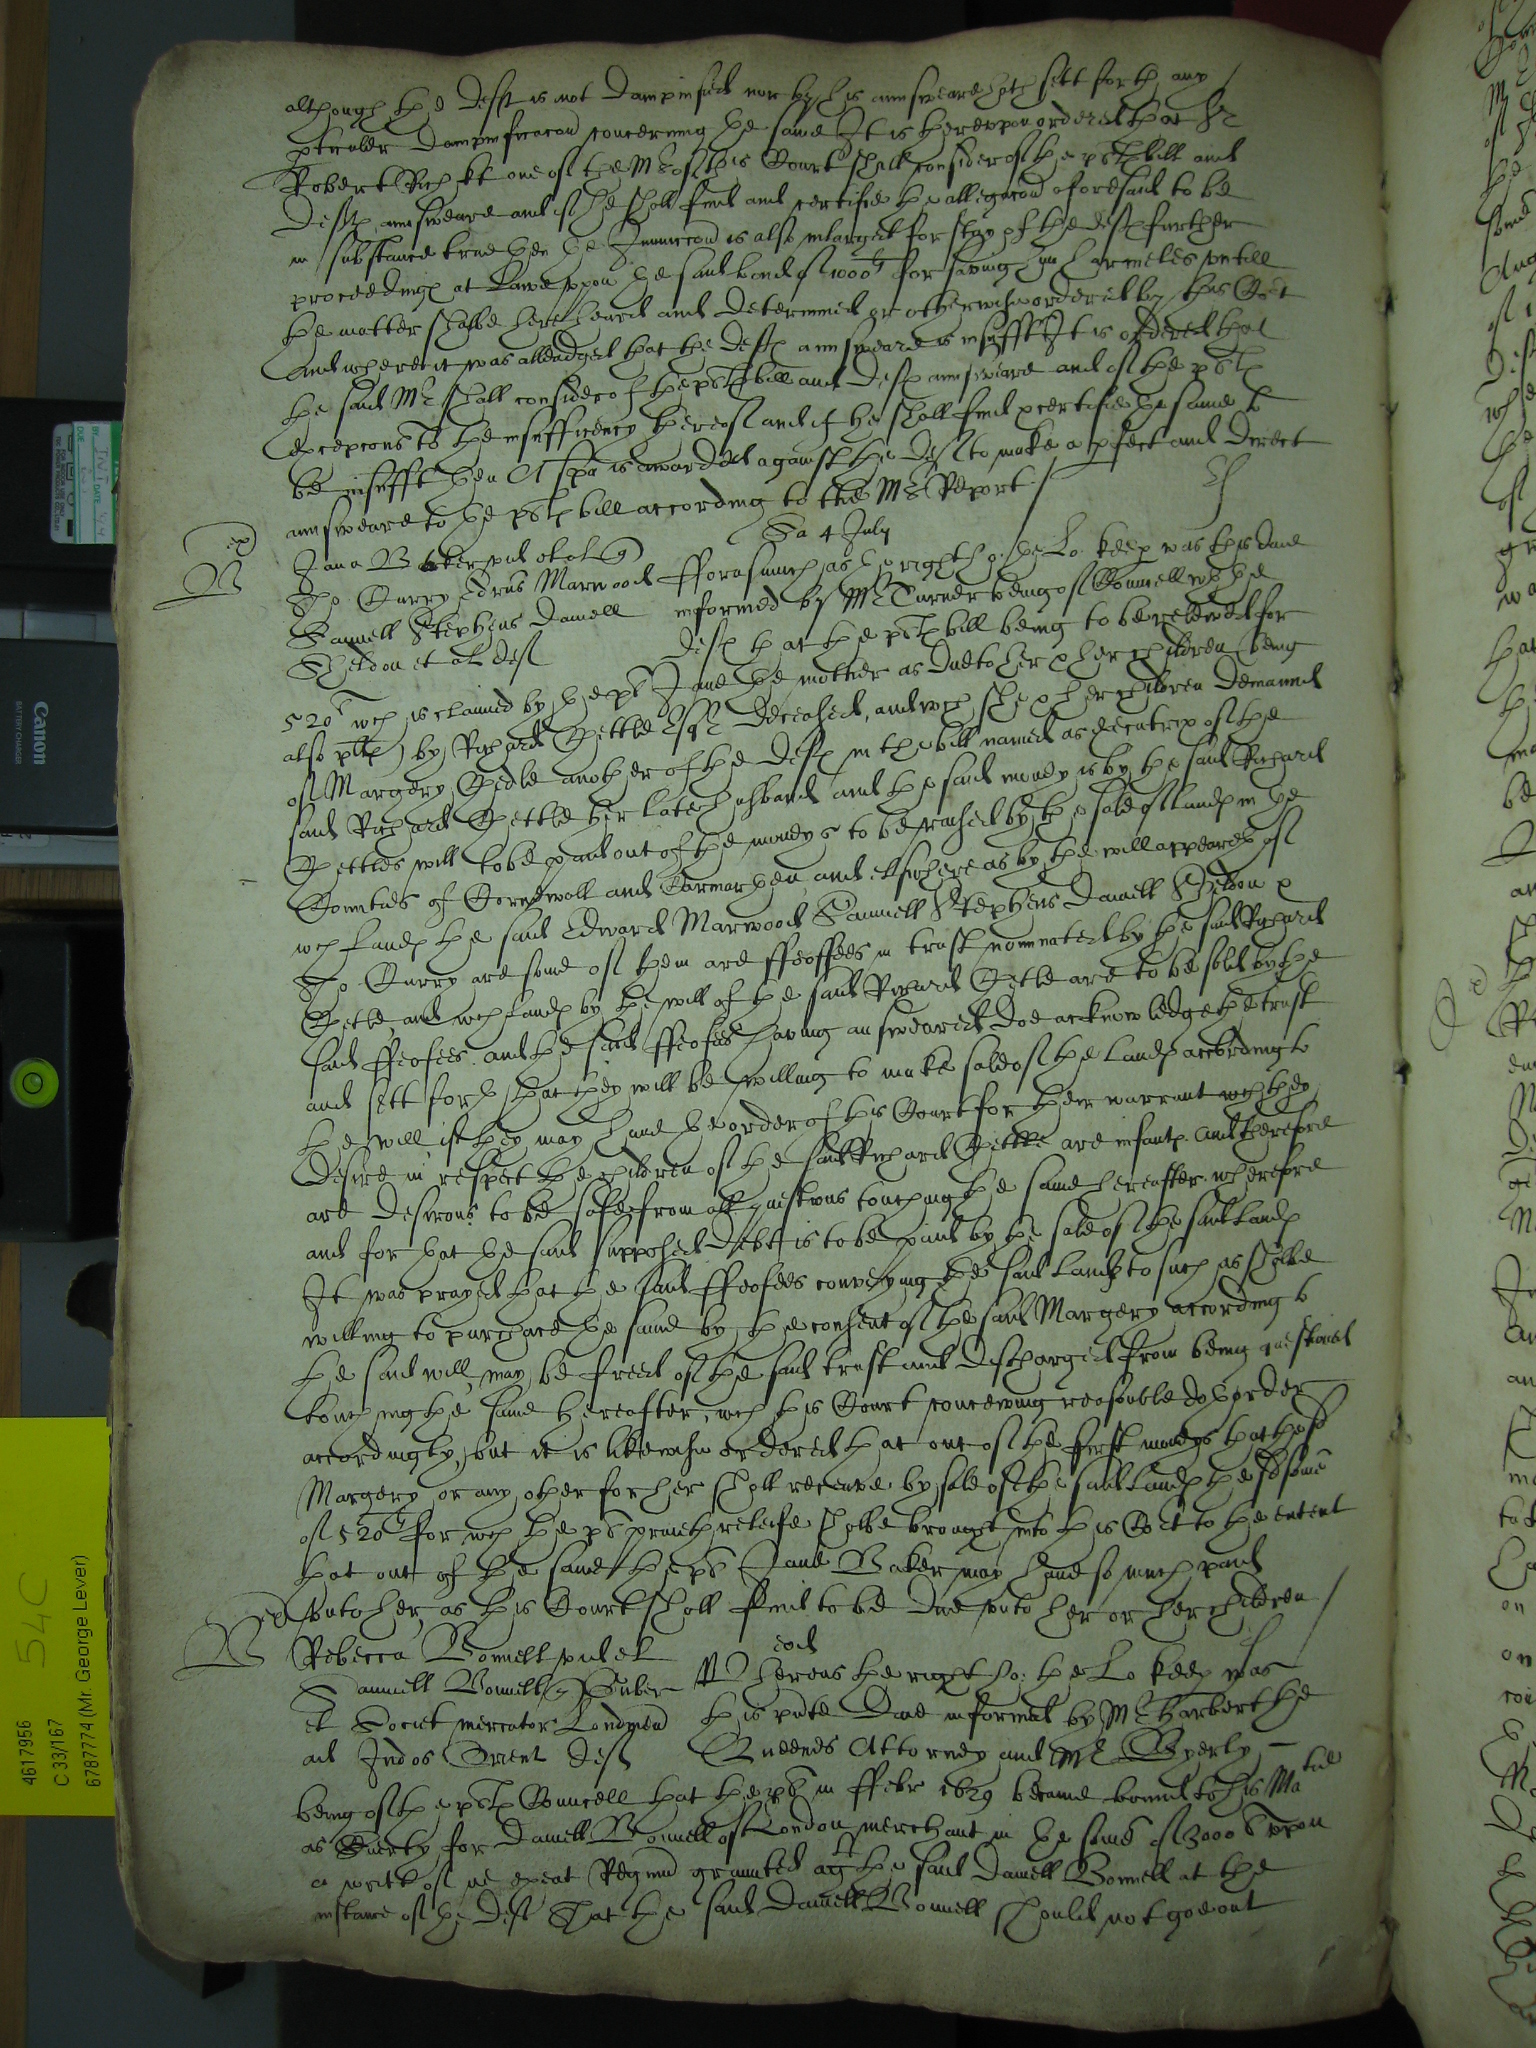 although the deft is not dampnified nor by his answeare hath sett forth any
pticuler dampnificacon concerning the same It is thereupon ordered that Sr
Robert Rich kt one of the Mrs of this Court shall consider of the plts bill and
defts answeare and if he shall find and certifie the allegacon aforesaid to be
in substance true then the Iniunccon is also inlarged for stay of the defts further
proceedings at Lawe uppon the said bond of 1000li for saving him harmeles untill
the matter shalbe here heard and determined or otherwise ordered by this Cort
And where it was alleadged that the defts answeare is insufft It is ordered that
the said Mr shall consider of the plts bill and defts answeare and of the plts
excepcons to the insufficiency thereof and if he shall find & certifie the same to
be insufft then A spa is awarded against the deft to make a pfect and direct
answeare to the plts bill according to the Mrs Report
Sa 4 July
Rep
Jana Baker vid et al q
Jo Curry Edrus Marwood
Samuell Stephens Daniell
Sheldon et al deft
fforasmuch as the right ho: the Lo: keep was this daie
informed by Mr Turner being of Councell wth the
defts that the plts bill being to be releived for
520li wch is claimed by the plt Jane the mother as due to her & her children being
also plts by Richard Gettle Esqr deceased, and wch she & her children demaund
of Margery Gedle another of the defts in the bill named as executrix of the
said Richard Gettle her late husband and the said money is by the said Richard
Gettles will to be paid out of the moneys to be raised by the sale of lands in the
Counties of Cornewall and Carmarthen and elswhere as by the will appeares of
wch lands the said Edward Marwood Samuell Stephens Daniell Sheldon &
Jo Curry are some of them are ffeoffees in trust nominated by the said Richard
Getle and wch lands by the will of the said Richard Getle are to be sold by the
said ffeofees and the said ffeofees having answeared doe acknowledge the trust
and sett forth that they will be willing to make sale of the lands according to
the will if they may have the order of this Court for their warrant wch they
desire in respect the children of the said Richard Gettle are infants and therefore
are desirous to be safe from all questions touching the same hereafter wherefore
and for that the said supposed debt is to be paid by the sale of the said Lands
It was prayed that the said ffeofees conveying the said lands to such as shalbe
willing to purchace the same by the consent of the said Margery according to
the said will, may be freed of the said trust and discharged from being questioned
touching the same hereafter, wch this Court conceiving reasonable doth order
accordingly, but it is likewise ordered that out of the first moneys that the sd
Margery or any other for her shall receave by sale of the said lands the sd some
of 520li for wch the plt praieth releife shalbe brought into this Cort to the entent
that out of the same the plt Jane Baker may have so much paid
unto her, as this Court shall find to be due unto her or her children
Rep
Rebecca Bonnell vid et
Samuell Bonnell q Guber
et Societ mercator Londinen
ad Indos Orient deft
eod
Whereas the right ho: the Lo keep was
this pnte daie informed by Mr Harbert the
Queenes Attorney and Mr Byerly
being of the plts Councell that the plt in ffebr 1629 became bound to his Matie
as Suerty for Daniell Bonnell of London merchant in the some of 3000li uppon
a writt of ne exeat Regnum graunted agt the said Daniell Bonnell at the
instance of the deft That the said Daniell Bonnell should not goe out
Canon
BATTERY CHARGER
54C
4617956
C 33/167
6787774 (Mr. George Lever)